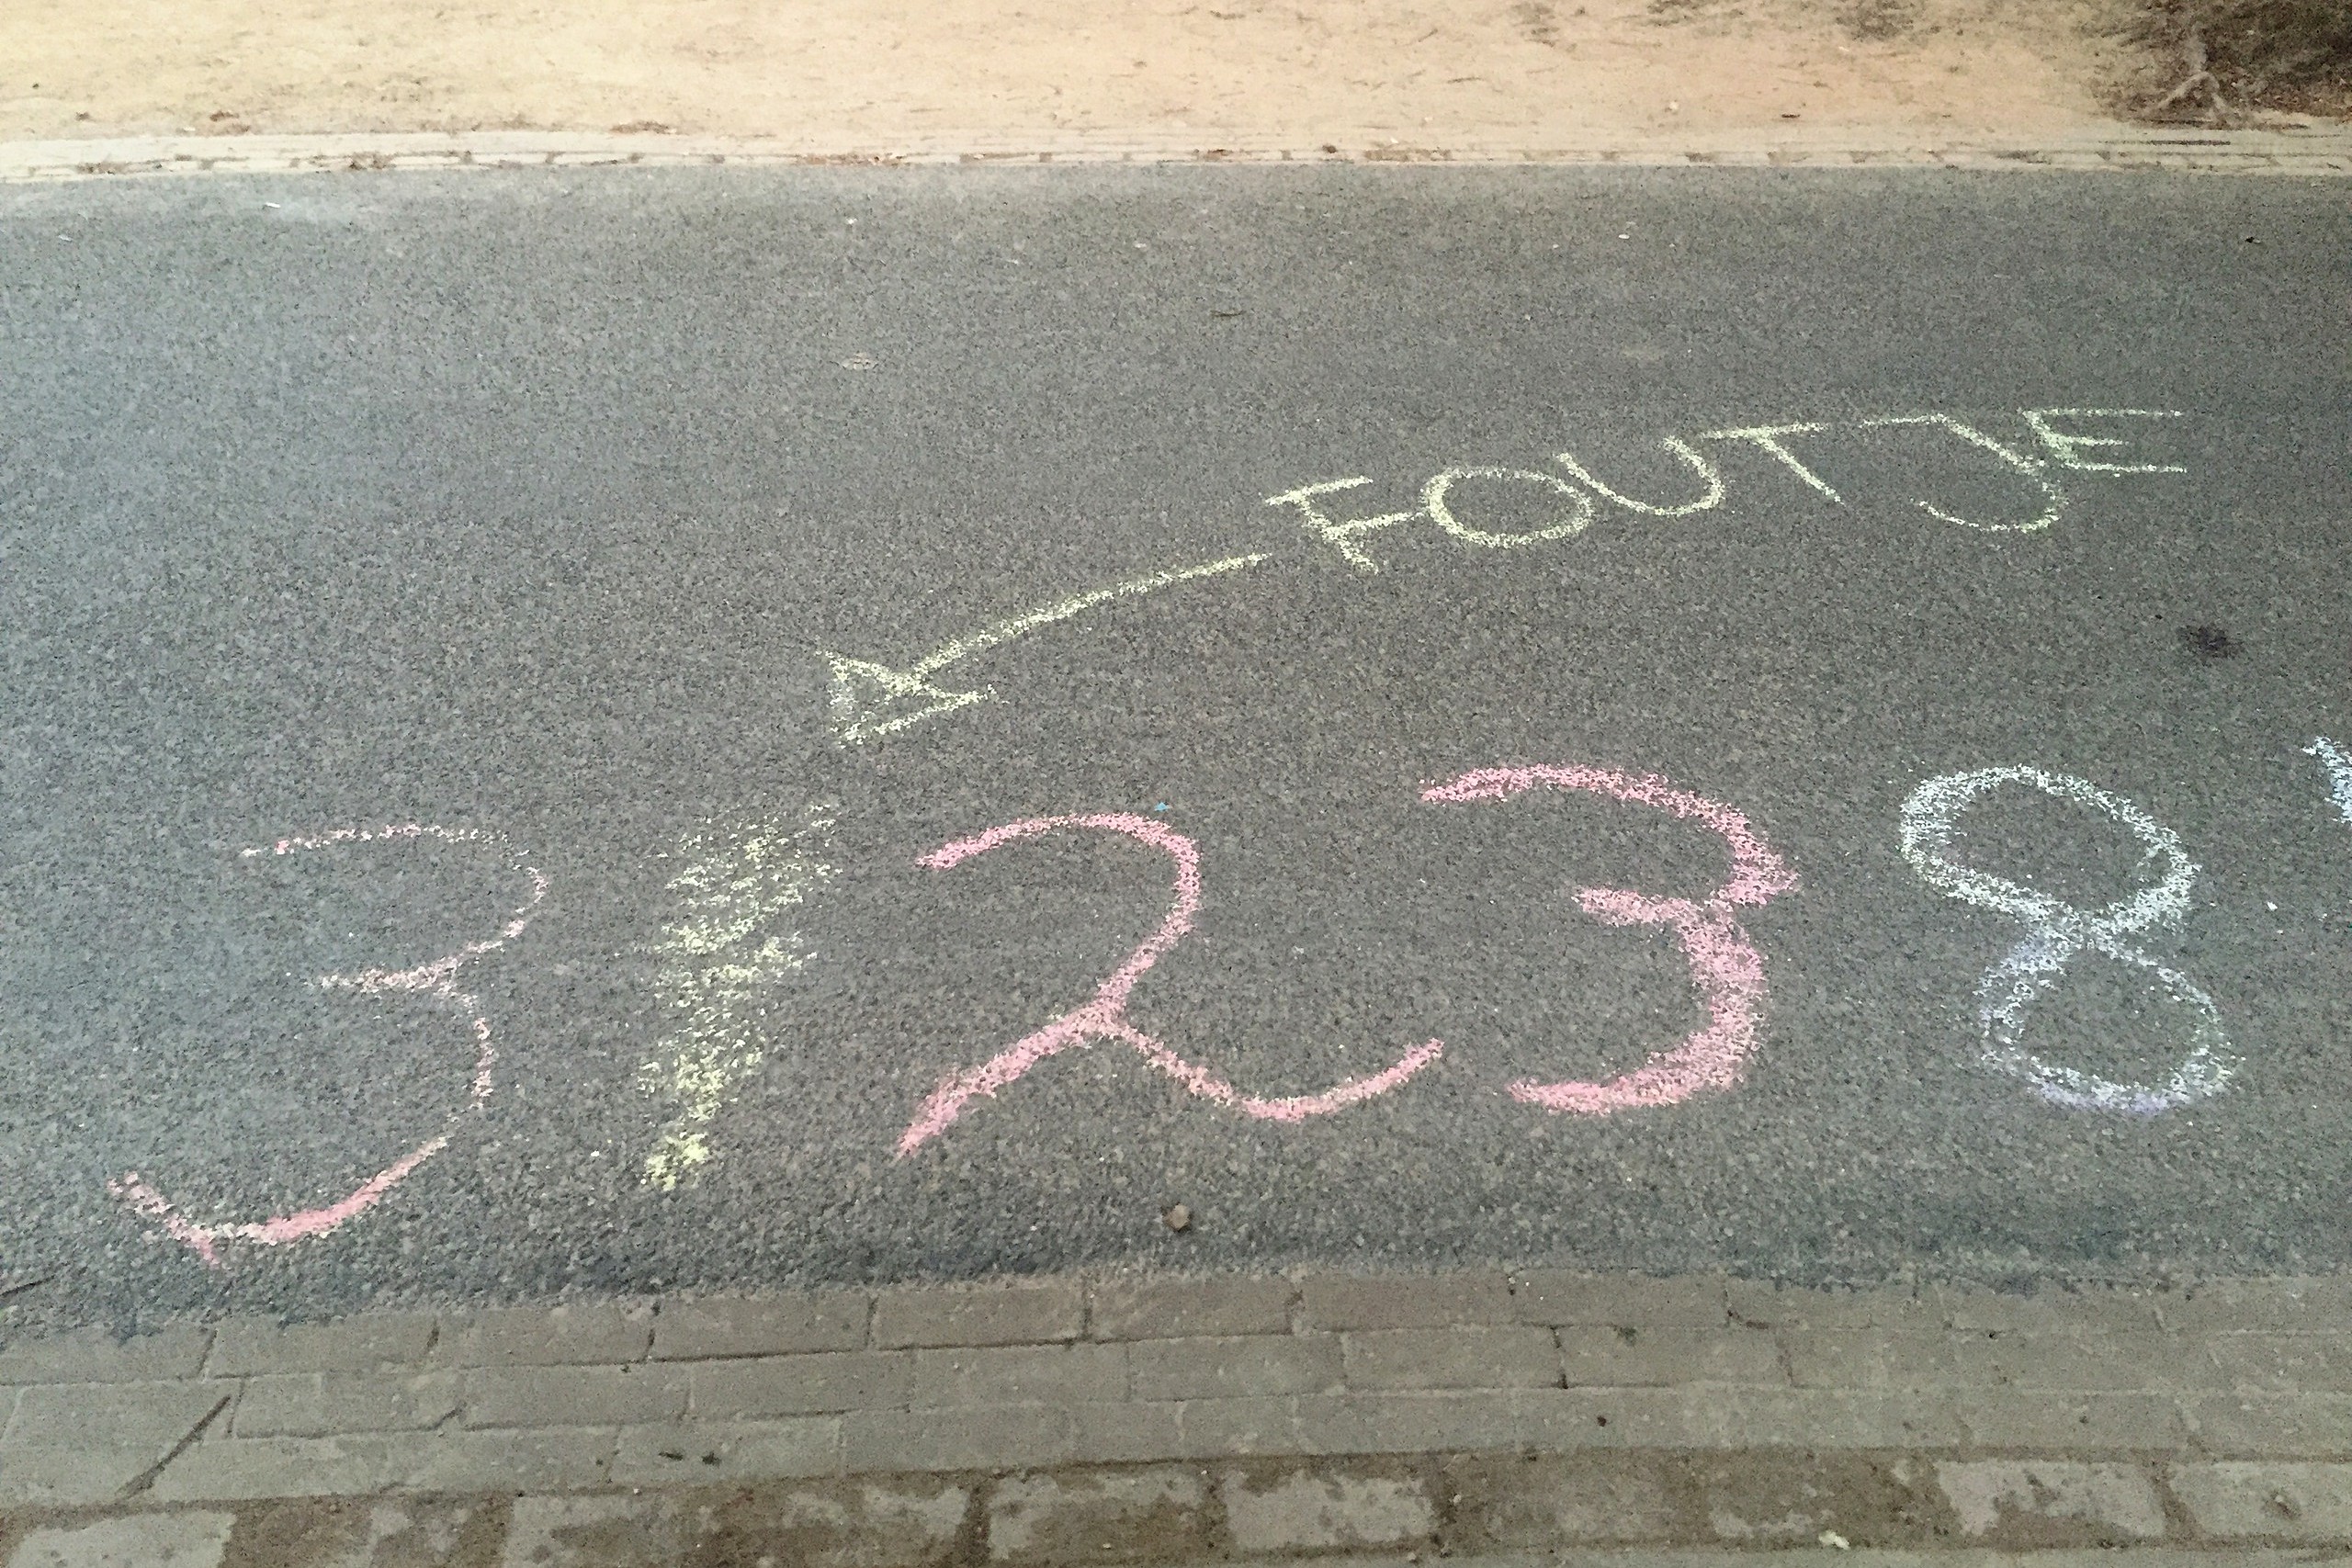 FOUTJE
3 2 3 8